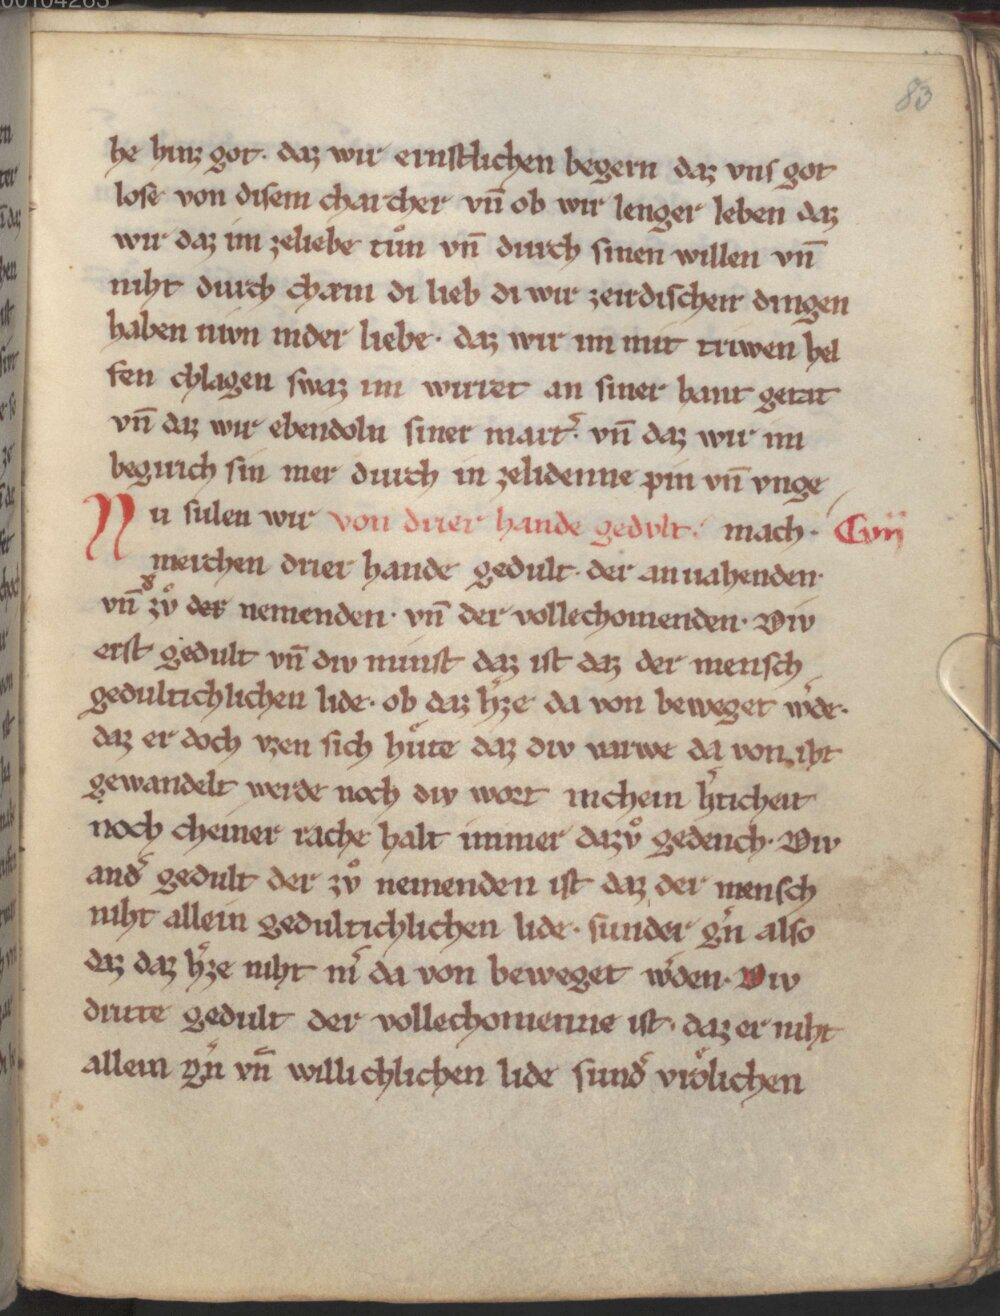 00104263
83
he hinz got· daz wir ernstlichen begern daz vns got
lose von disem charcher vn̄ ob wir lenger leben daz
wir daz im zeliebe tůn vn̄ durch sinen willen vn̄
niht durch di lieb di wir zeirdischen dingen
haben niwn inder liebe· daz wir im mit triwen hel
fen chlagen swaz im wirret an siner hant getat
vn̄ daz wir ebendoln siner mart͛· vn̄ daz wir im
begirich sin mer durch in zelidenne pin vn̄ vnge
Nu sulen wir von drier hande gedvlt· mach· C vii
merchen drier hande gedult· der an nahenden·
vn̄ zv̊ der nemenden· vn̄ der vollechomenden· Div
erst gedult vn̄ div minst daz ist daz der mensch
gedultichlichen lide· ob daz h͛ze da von beweget w͛de·
daz er doch vzen sich hůte daz div varwe da von iht
gewandelt werde noch div wort nichein h͛ticheit
noch cheiner rache halt immer dazv̊ gedench· Div
and͛ gedult der zv̊ nemenden ist daz der mensch
niht allein gedultichlichen lide· sunder g͛n also
daz daz h͛ze niht m͛ da von beweget w͛den· Div
dritte gedult der vollechomenne ist· daz er niht
allein g͛n vn̄ willichlichen lide sund͛ vrölichen